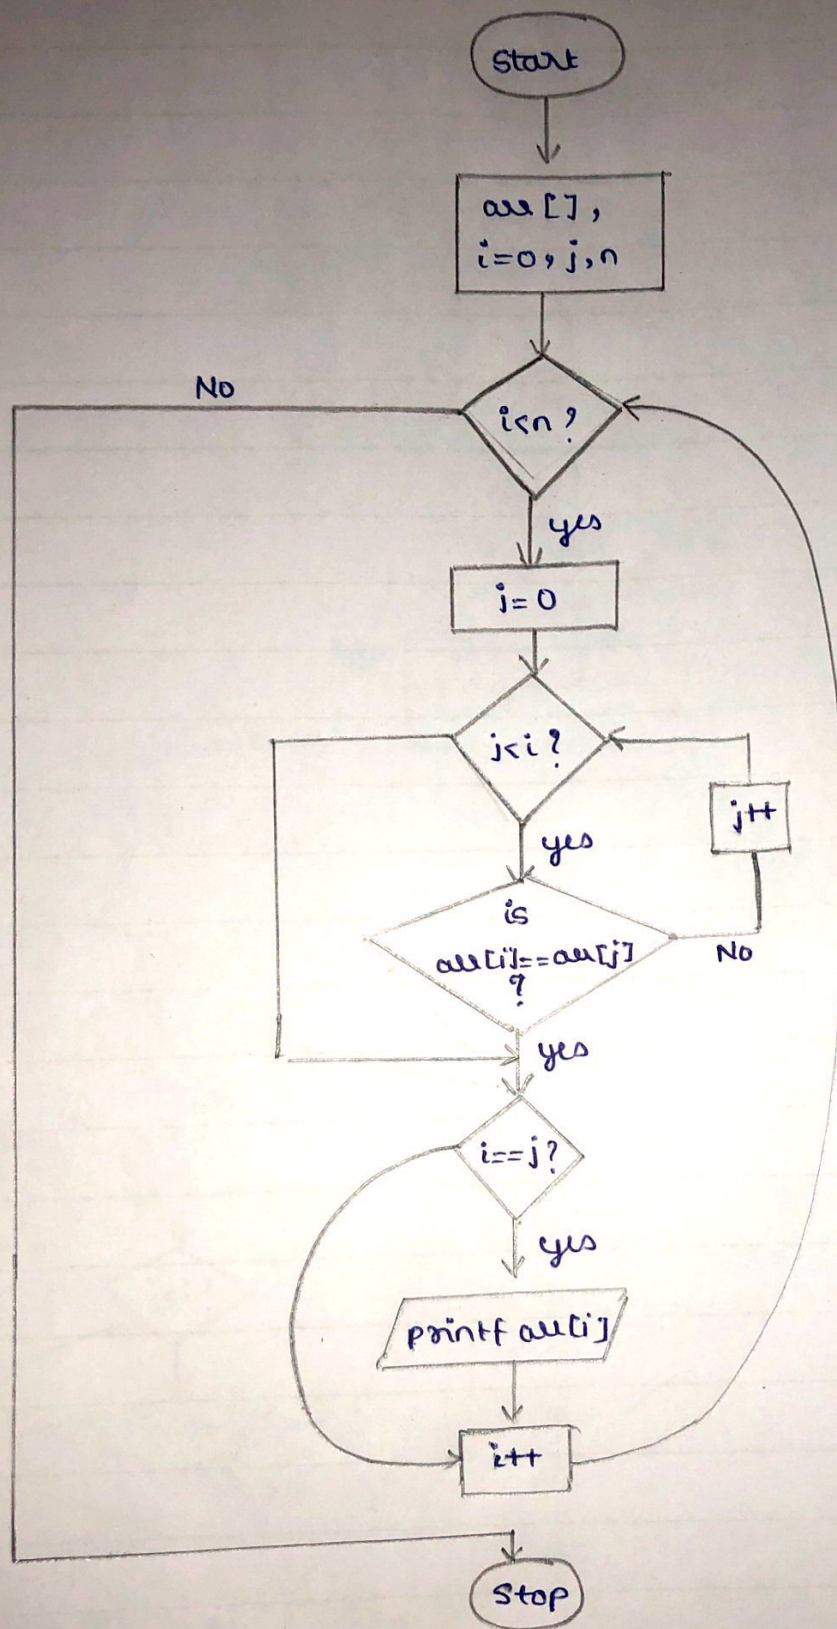 Start
arr[],
i=0, j, n
No
i<n?
yes
j=0
j<i?
j++
yes
is
arr[i]==arr[j]
?
No
yes
i==j?
yes
printf arr[i]
i++
Stop